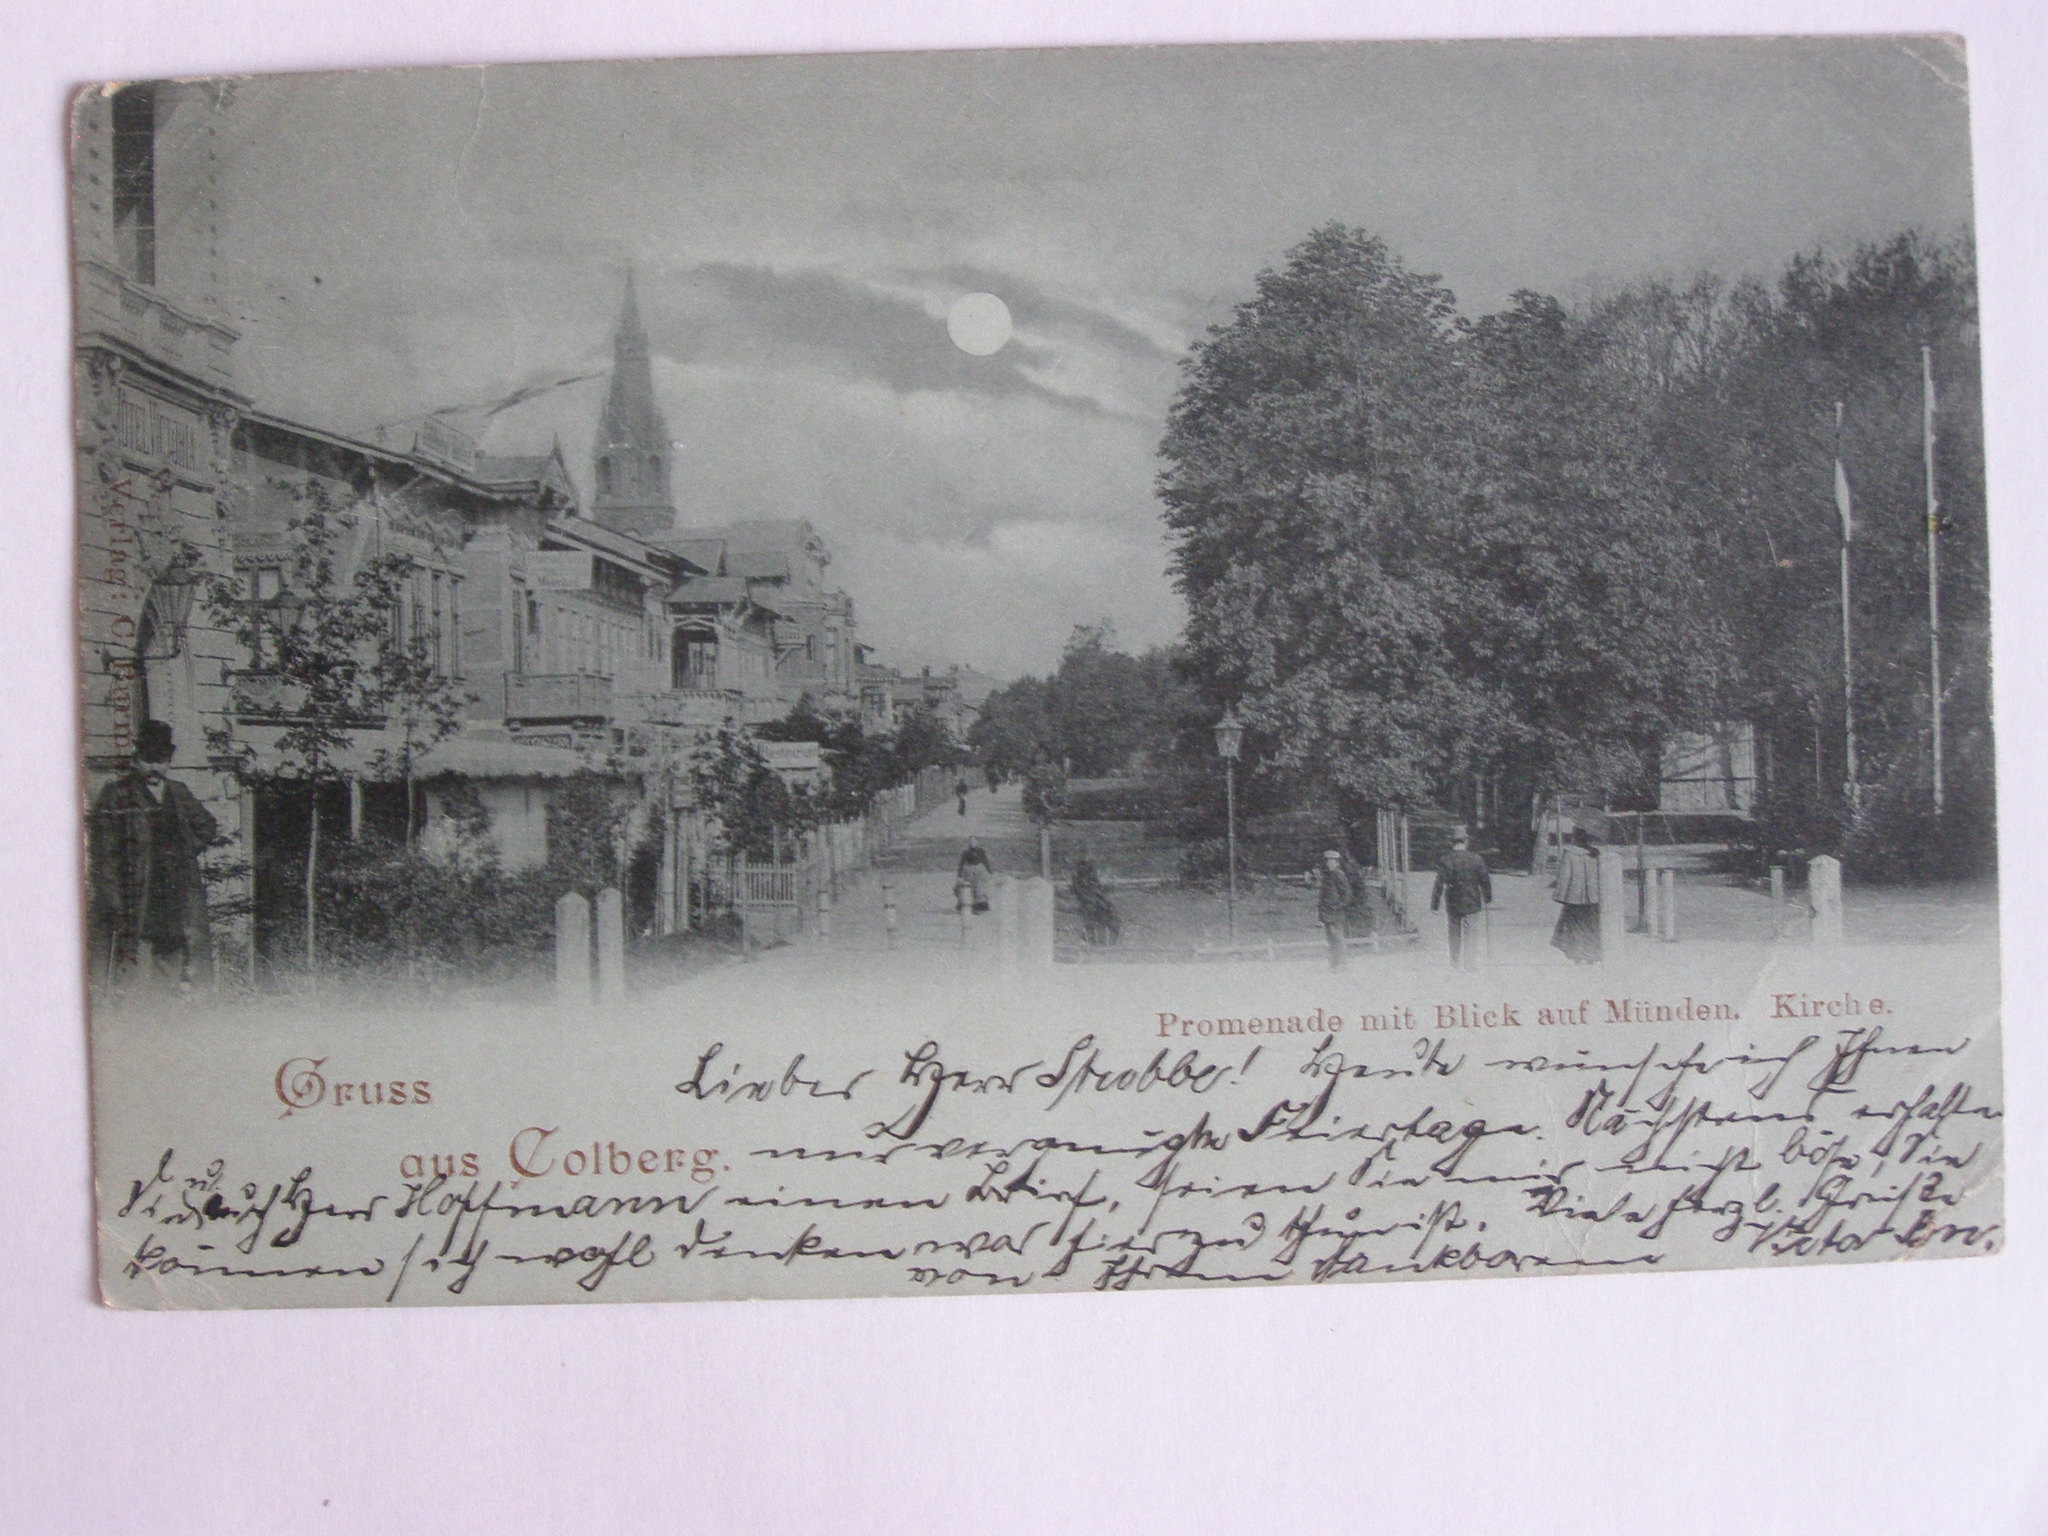 HOTEL VICTORIA
Promenade mit Blick auf Münden. Kirche.
Gruss
aus Colberg.
Lieber Herr Strobbe! Heute wünsche ich Ihnen
nur vergnügte Feiertage. Nächstens erhalten
Sie u. auch Herr Hoffmann einen Brief, seien Sie mir nicht böse, Sie
können sich wohl denken was hier zu thun ist. Viele herzl. Grüße
von Ihrem dankbaren